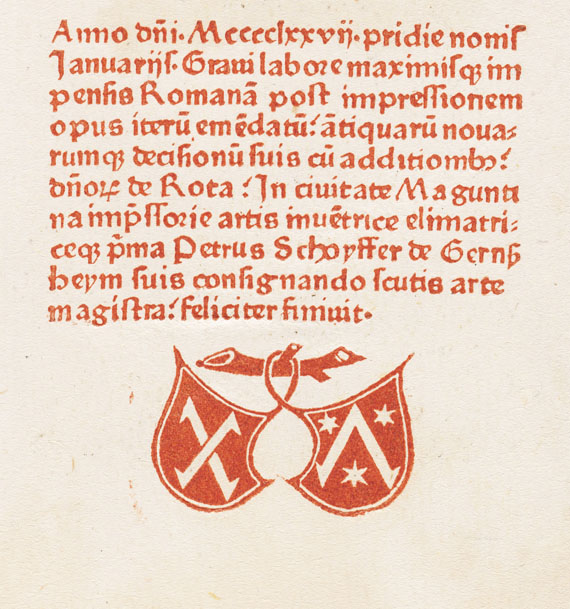 Anno dñi· Mcccclxxvij· pridie nonis
Januarijs· Graui labore maximisqꝫ im
pensis Romanã post impressionem
opus iterũ emẽdatũ: ãtiquarũ noua⸗
rumqꝫ decisionũ suis cũ additionibꝫ:
dñoꝝ de Rota: In ciuitate Magunti
na imp̃ssorie artis inuẽtrice elimatri⸗
ceqꝫ p̃ma Petrus Schoyffer de Gernß
heym suis consignando scutis arte
magistra: feliciter finiuit·